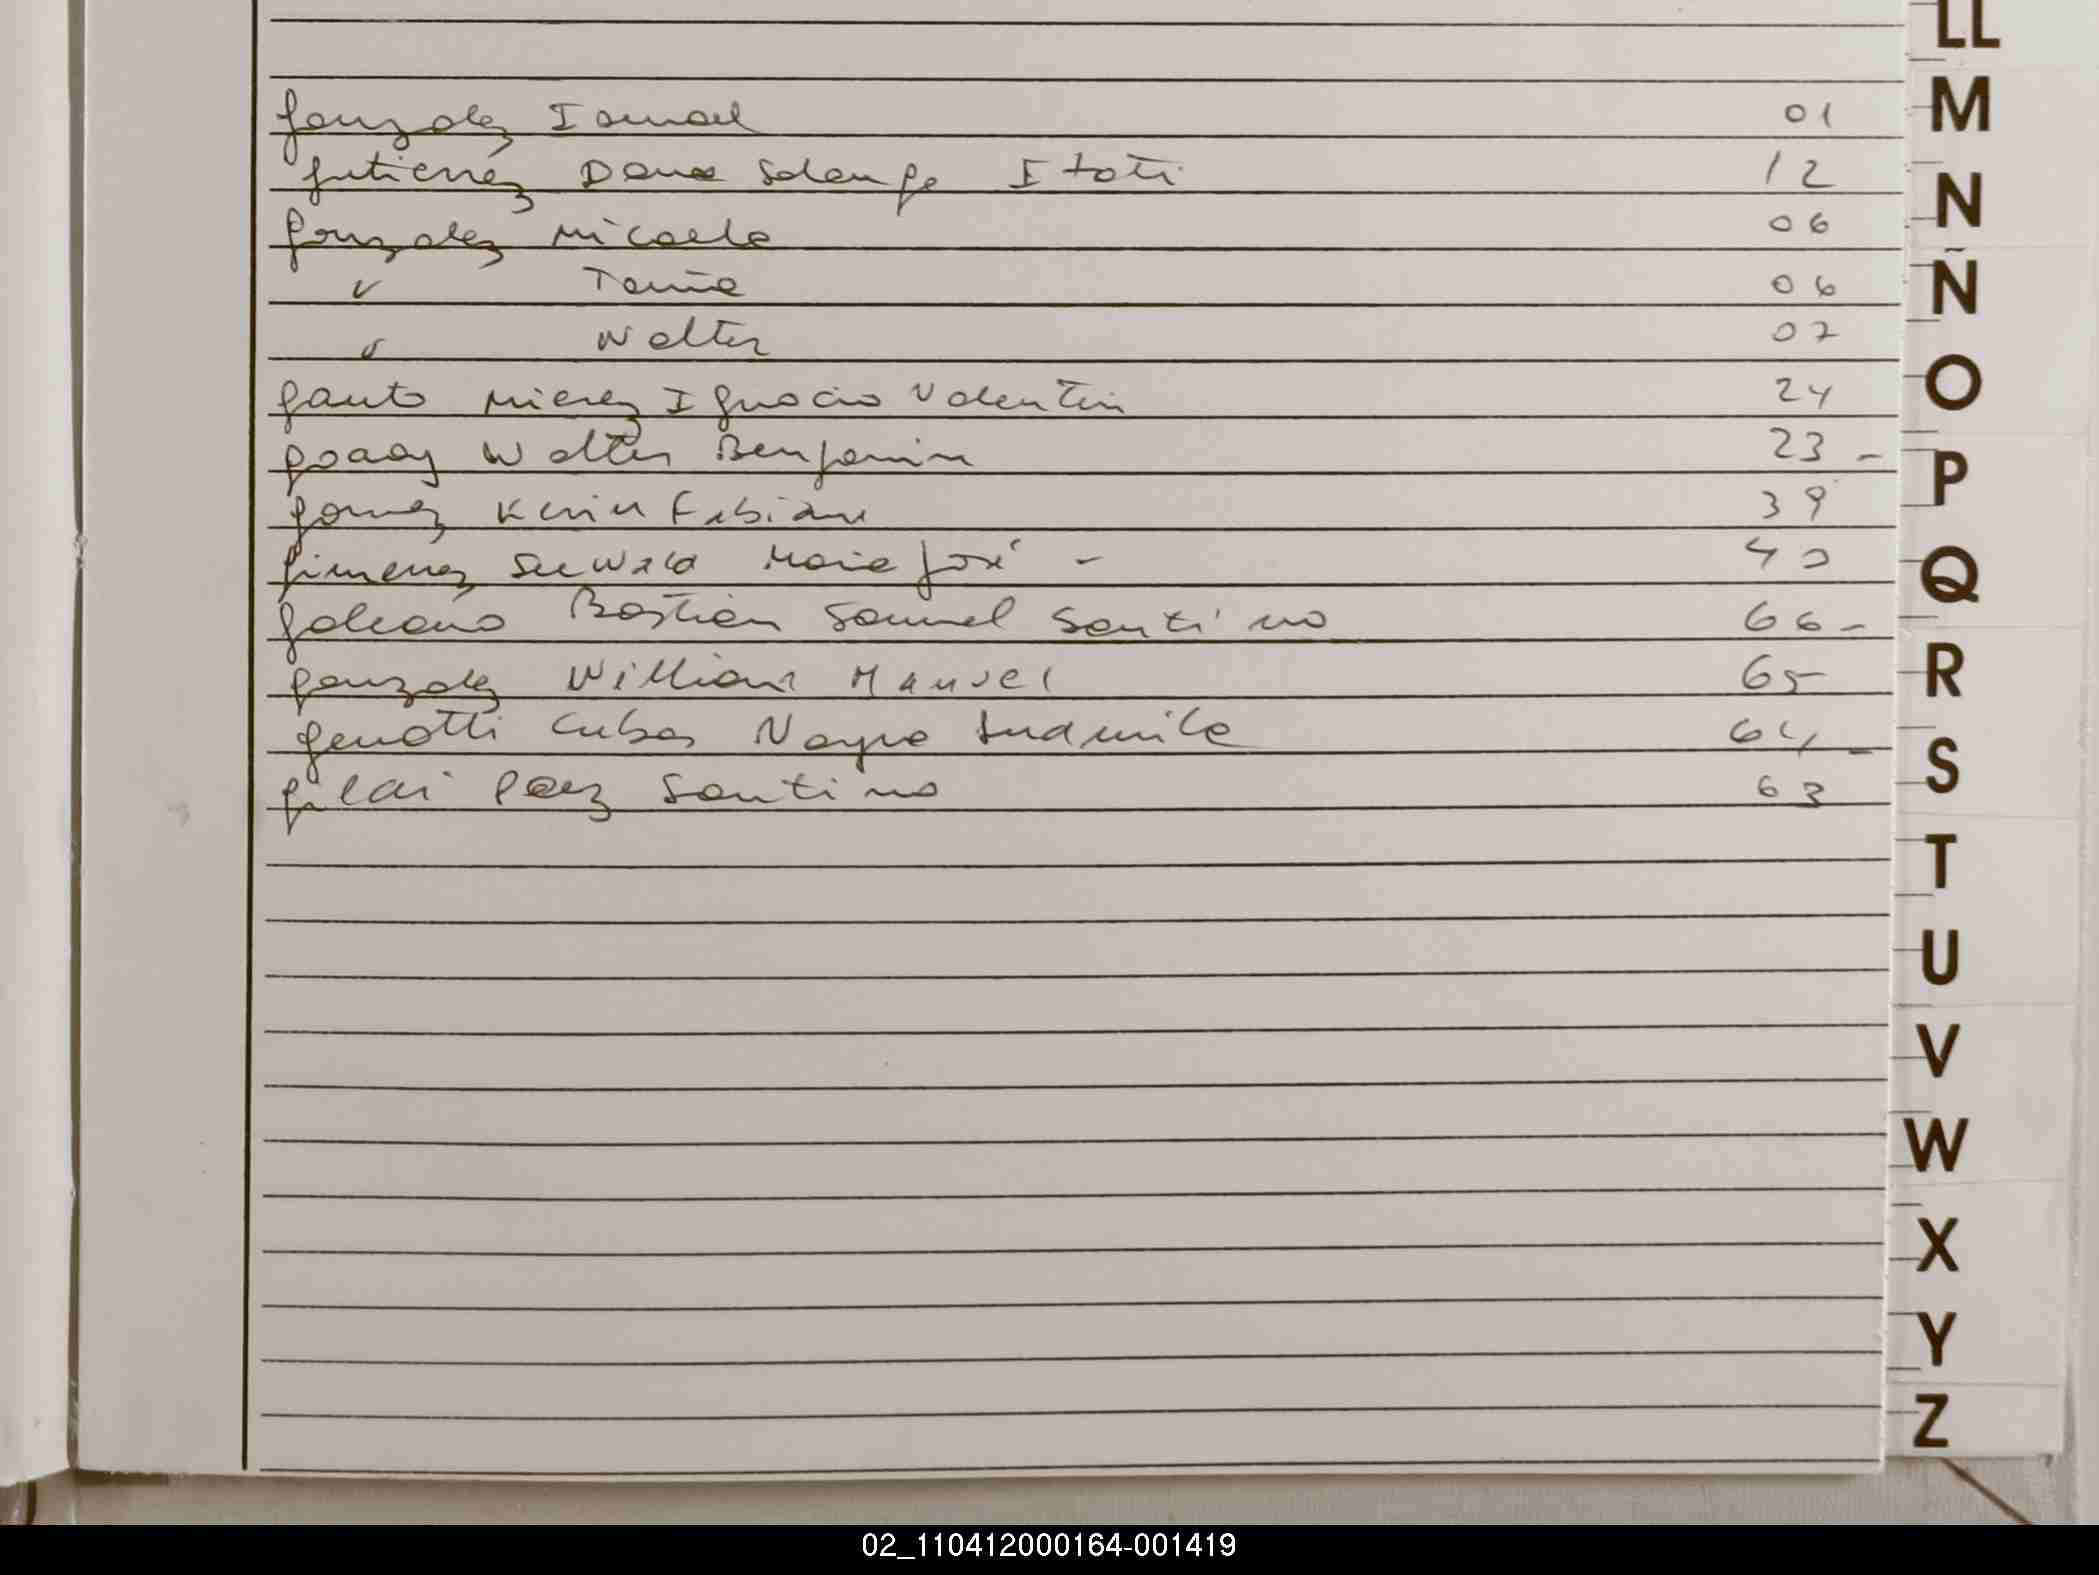 Gonzalez Ismael 01
Gutierrez Dana Solange Itati 12
Gonzalez Micaela 06
" Tania 06
" Walter 07
Gauto Mierez Ignacio Valentin 24
Godoy Walter Benjamin 23 -
Gomez Kevin Fabian 39
Gimenez Sewald Maria José - 40
Galeano Bastian Samuel Santino 66-
Gonzalez William Manuel 65
Genotti Cubas Nayra Ludmila 64 -
Paez Santino 63
LL
M
N
Ñ
O
P
Q
R
S
T
U
V
W
X
Y
Z
02_110412000164-001419